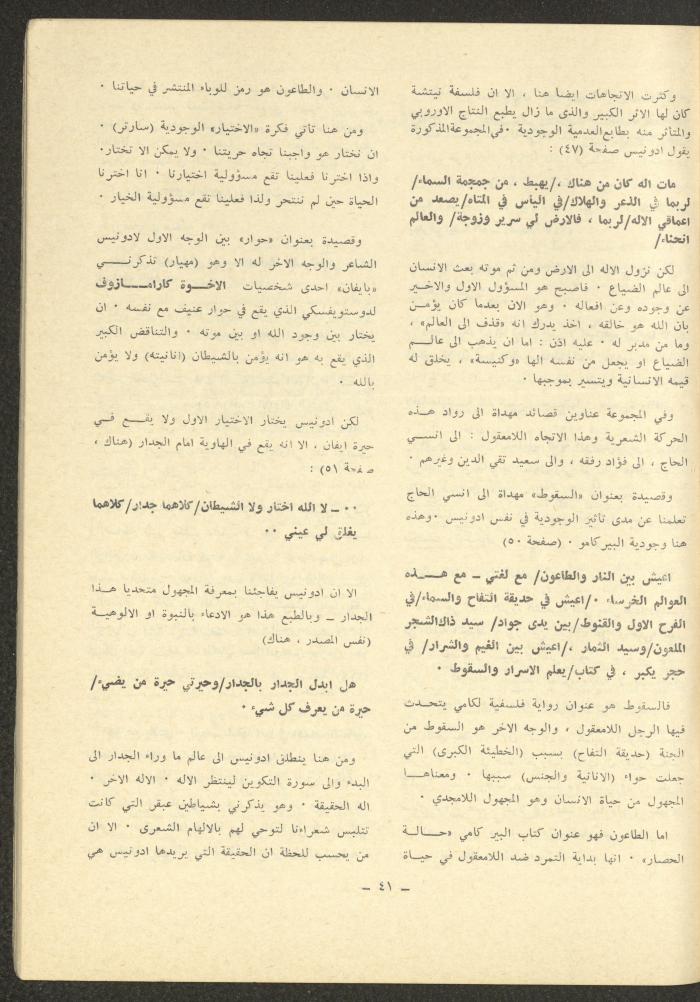 وكثرت الاتجاهات ايضا هنا ، الا ان فلسفة نيتشة
كان لها الاثر الكبير والذى ما زال يطبع النتاج الاوروبي
والمتأثر منه بطابع العدمية الوجودية ٠ في المجموعة المذكورة
يقول ادونيس صفحة (٤٧) :
مات اله كان من هناك ،/يهبط ، من جمجمة السماء/
لربما في الذعر والهلاك/في اليأس في المتاه/يصعد من
اعماقي الاله/لربما ، فالارض لي سرير وزوجة/ والعالم
انحناء/
لكن نزول الاله الى الارض ومن ثم موته بعث الانسان
الى عالم الضياع ٠ فاصبح هو المسؤول الاول والاخير
عن وجوده وعن افعاله ٠ وهو الان بعدما كان يؤمن
بان الله هو خالقه ، اخذ يدرك انه «قذف الى العالم» ،
وما من مدبر له ٠ عليه اذن : اما ان يذهب الى عالم
الضياع او يجعل من نفسه الها «وكنيسة» ، يخلق له
قيمه الانسانية ويتسير بموجبها ٠
وفي المجموعة عناوين قصائد مهداة الى رواد هذه
الحركة الشعرية وهذا الاتجاه اللامعقول : الى انسي
الحاج ، الى فؤاد رفقه ، والى سعيد تقي الدين وغيرهم ٠
وقصيدة بعنوان «السقوط» مهداة الى انسي الحاج
تعلمنا عن مدى تأثير الوجودية في نفس ادونيس ٠ وهذه
هنا وجودية البير كامو ٠ (صفحة ٥٠)
اعيش بين النار والطاعون/ مع لغتي ـ مع هـذه
العوالم الخرساء ٠/اعيش في حديقة التفاح والسماء/في
الفرح الاول والقنوط/بين يدى جواد/ سيد ذاك الشجر
الملعون/وسيد الثمار ،/اعيش بين الغيم والشرار/ في
حجر يكبر ، في كتاب/يعلم الاسرار والسقوط ٠
فالسقوط هو عنوان رواية فلسفية لكامي يتحدث
فيها الرجل اللامعقول ، والوجه الاخر هو السقوط من
الجنة (حديقة التفاح) بسبب (الخطيئة الكبرى) التي
جعلت حواء (الانانية والجنس) سببها ٠ ومعناها
المجهول من حياة الانسان وهو المجهول اللامجدي ٠
اما الطاعون فهو عنوان كتاب البير كامي «حـالـة
الحصار» ٠ انها بداية التمرد ضد اللامعقول في حياة
الانسان ٠ والطاعون هو رمز للوباء المنتشر في حياتنا ٠
ومن هنا تأتي فكرة «الاختيار» الوجودية (سارتر) ٠
ان نختار هو واجبنا تجاه حريتنا ٠ ولا يمكن الا نختار٠
واذا اخترنا فعلينا تقع مسؤولية اختيارنا ٠ انا اخترنا
الحياة حين لم ننتحر ولذا فعلينا تقع مسؤولية الخيار ٠
وقصيدة بعنوان «حوار» بين الوجه الاول لادونيس
الشاعر والوجه الاخر له الا وهو (مهيار) تذكرنـي
«بايفان» احدى شخصيات الاخـوة كارامـازوف
لدوستويفسكي الذي يقع في حوار عنيف مع نفسه ٠ ان
يختار بين وجود الله او بين موته ٠ والتناقض الكبير
الذي يقع به هو انه يؤمن بالشيطان (انانيته) ولا يؤمن
بالله ٠
لكن ادونيس يختار الاختيار الاول ولا يقـع فـي
حيرة ايفان ، الا انه يقع في الهاوية امام الجدار (هناك ،
صفحة ٥١) :
٠٠ ـ لا الله اختار ولا الشيطان/كلاهما جدار/كلاهما
يغلق لي عيني ٠٠
الا ان ادونيس يفاجئنا بمعرفة المجهول متحديا هـذا
الجدار ـ وبالطبع هذا هو الادعاء بالنبوة او الالوهيـة
(نفس المصدر ، هناك)
هل ابدل الجدار بالجدار/وحيرتي حيرة من يضيء/
حيرة من يعرف كل شيء ٠
ومن هنا ينطلق ادونيس الى عالم ما وراء الجدار الى
البدء والى سورة التكوين لينتظر الاله ٠ الاله الاخر ٠
اله الحقيقة ٠ وهو يذكرني بشياطين عبقر التي كانت
تتلبس شعراءنا لتوحي لهم بالالهام الشعرى ٠ الا ان
من يحسب للحظة ان الحقيقة التي يريدها ادونيس هي
ـ ٤١ ـ